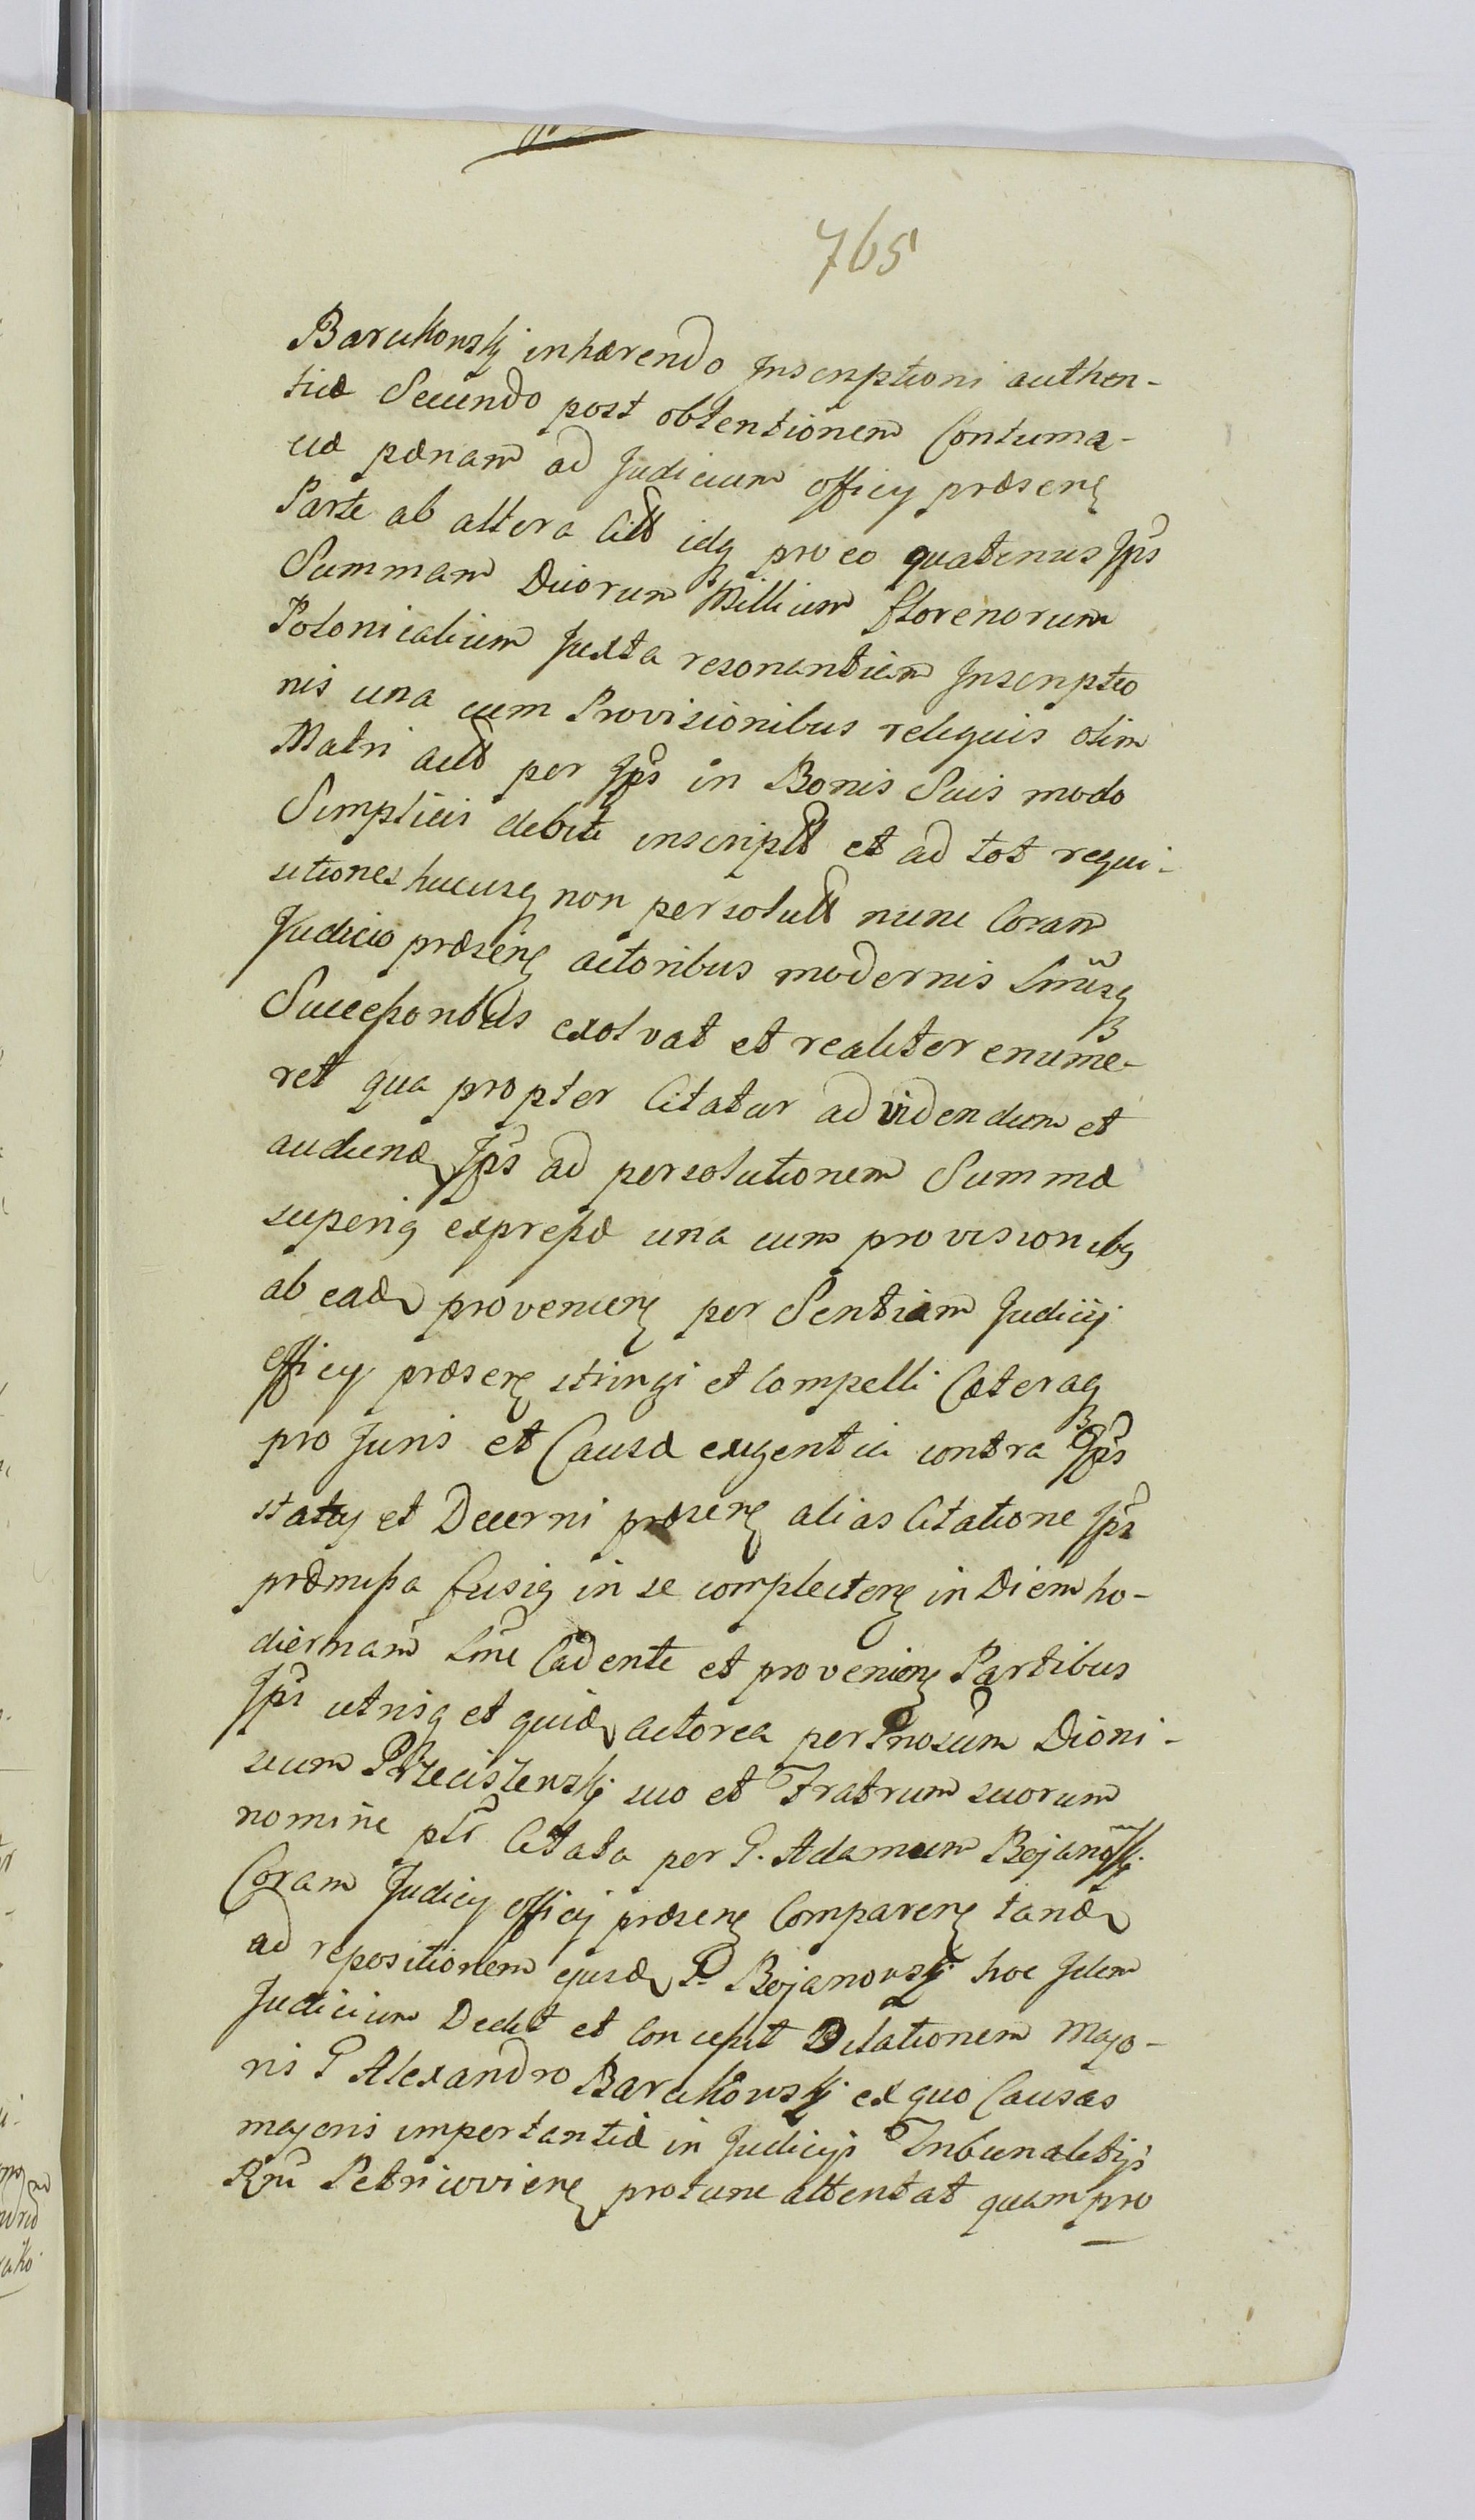 765
Barukowskj inhærendo Inscriptioni authen-
ticæ Secundo post obtentionem Contuma-
ciæ pænam ad Judicium officÿ præsenꝭ
Parte ab altera Citt idq pro eo quatenus Ips
Summam Duorum Millium florenorum
Polonicalium Juxta resonantiam Inscriptio
nis una cum Provisionibus reliquis olim
Matri act per Ips in Bonis Suis modo
Simplicis debiti inscript et ad tot requi-
sitiones hucusq non persolutt nunc Coram
Judicio præsenꝭ actoribus modernis Lmisq
Successoribus exolvat et realiter enume-
ret qua propter Citatur ad videndum et
audiend Ips ad persolutionem Summæ
superiq expressæ una cum provisionibq
ab ead provenienꝭ per Sentiam Judicij
officÿ præsenꝭ stringi et compelli Cæteraq
pro Juris et Causæ exigentia contra Ips
statuj et Decerni præsenꝭ alias Citatione Ips
præmissa fusiq in se complectenꝭ in Diem ho-
diernam Lme Cadente et provenienꝭ Partibus
Ips utrisq et quid actorea per Gnosum Dioni-
sium Przeciszewskj suo et Fratrum suorum
nomine pltr Citata per G. Adamum Bojanowskj
Coram Judicÿ officij præsenꝭ Comparenꝭ tand
ad repositionem ejusd G. Bojanowskj hoc Idem
Judicium Dedit et Concessit Dilationem Majo-
ris G Alexandro Barukowskj ex quo Causas
majoris importantiæ in Judicijs Tribunalitijs
Rni Petricovienꝭ protunc attentat quam pro